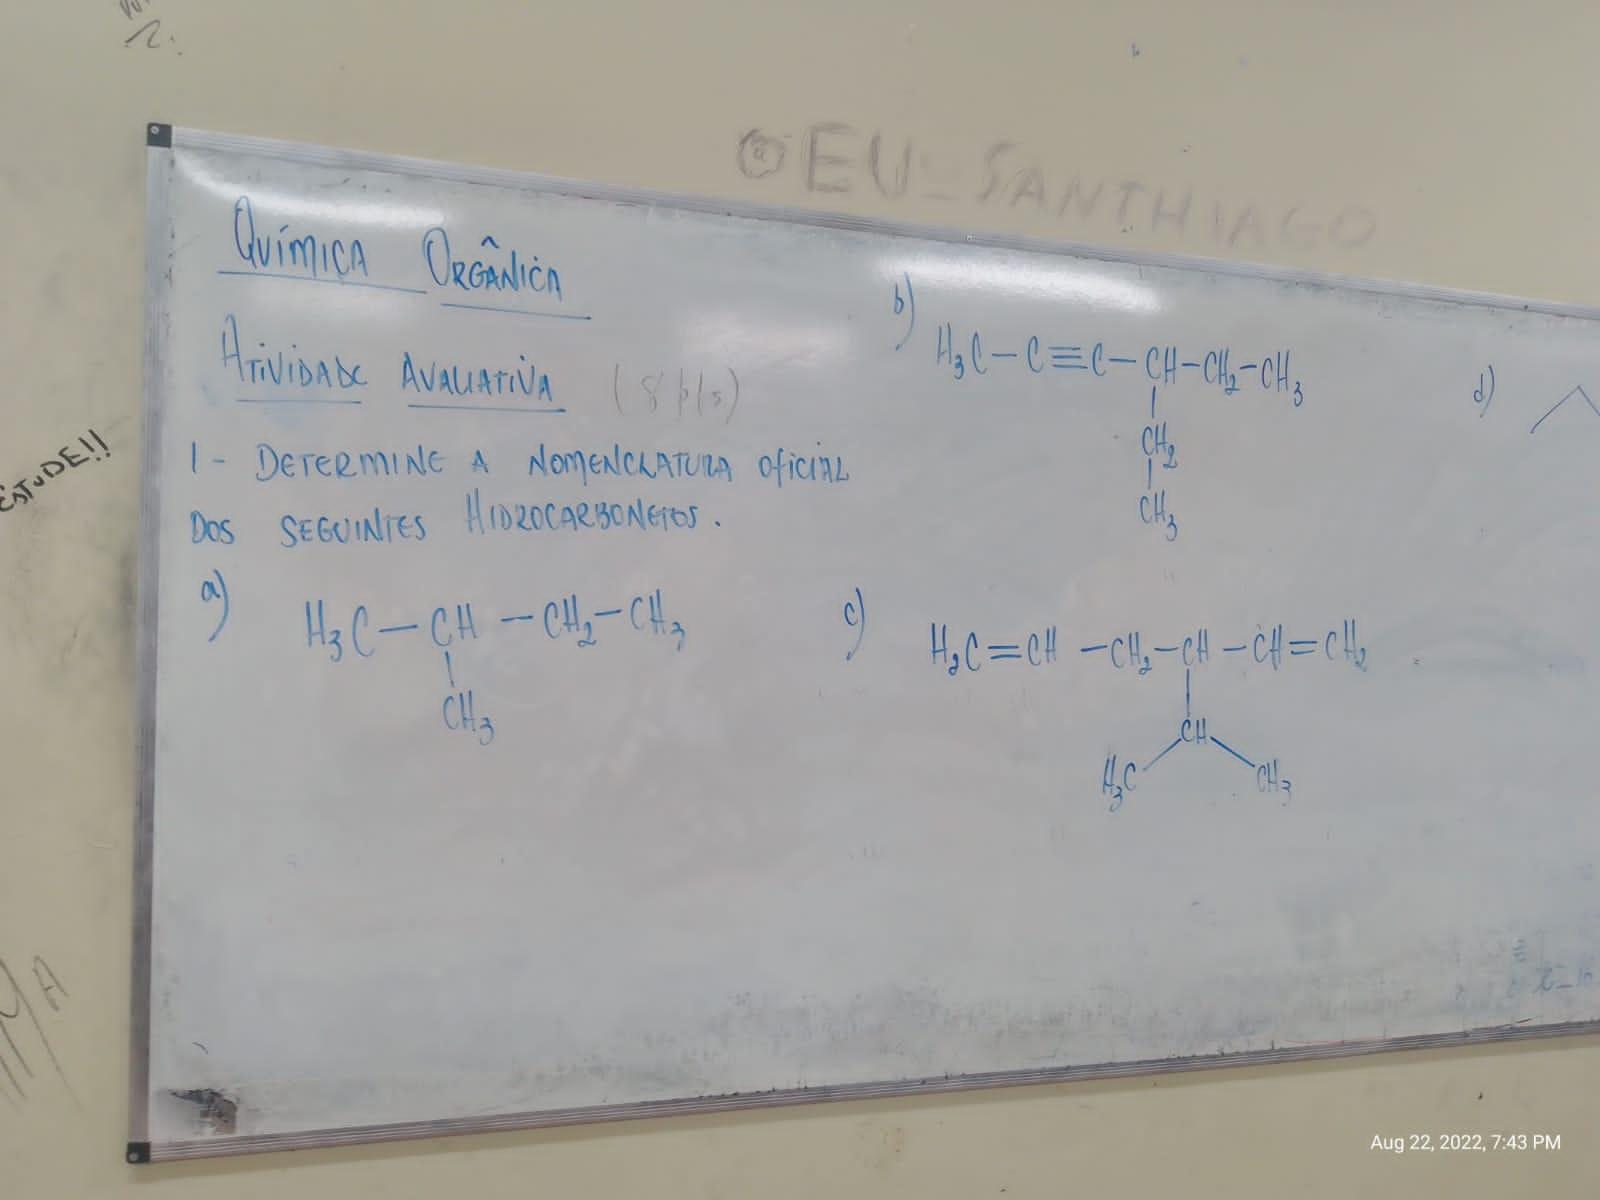 @EU_SANTHIAGO
QUÍMICA ORGÂNICA
ATIVIDADE AVALIATIVA (8 pts)
1- DETERMINE A NOMENCLATURA OFICIAL
DOS SEGUINTES HIDROCARBONETOS.
a)
H₃C — CH — CH₂ — CH₃
|
CH₃
b)
H₃C — C ≡ C — CH — CH₂ — CH₃
|
CH₂
|
CH₃
c)
H₂C = CH — CH₂ — CH — CH = CH₂
|
CH
H₃C CH₃
d)
ESTUDE!!
Aug 22, 2022, 7:43 PM